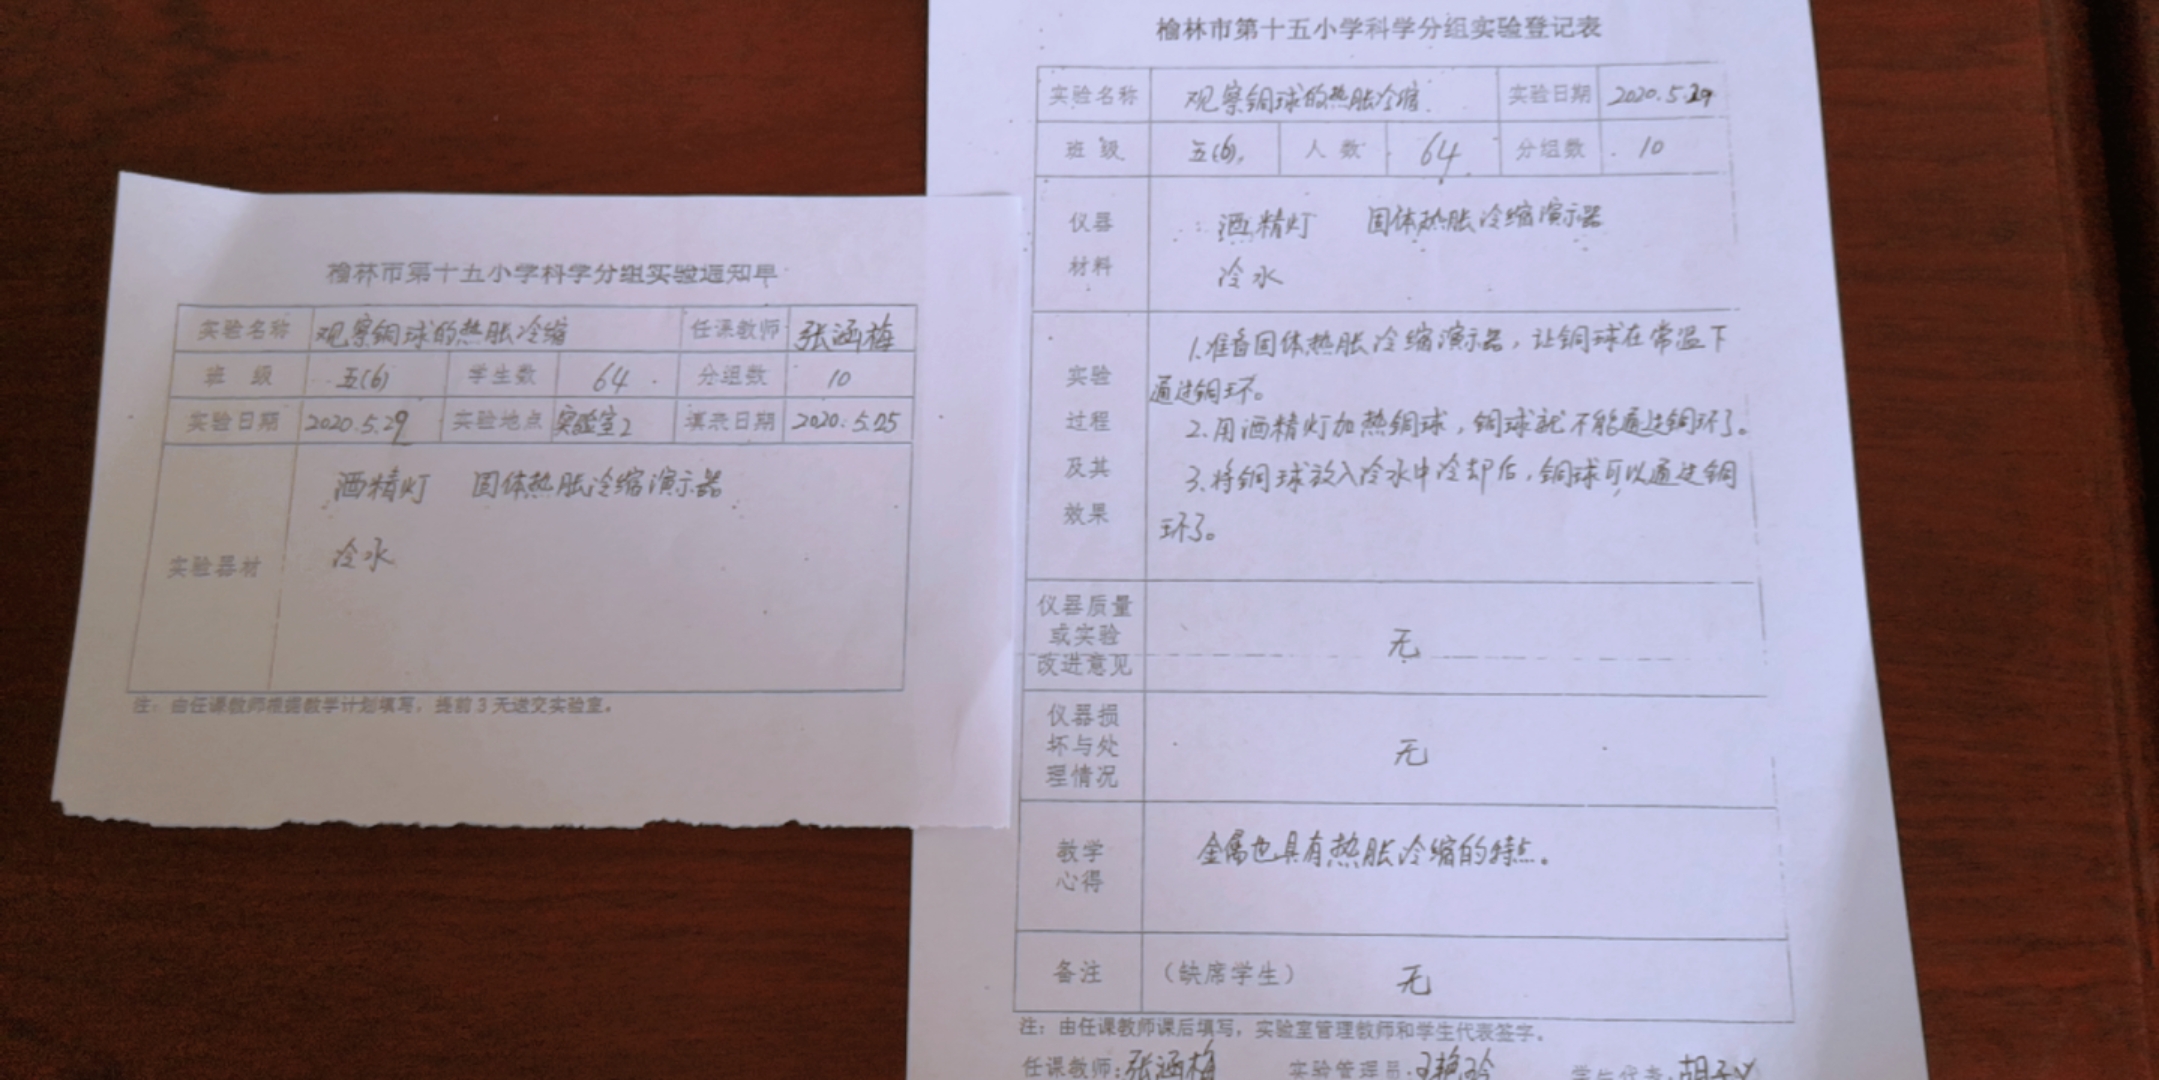 榆林市第十五小学科学分组实验通知单
实验名称 观察铜球的热胀冷缩 任课教师 张涵梅
班 级 五(6) 学生数 64 分组数 10
实验日期 2020.5.29 实验地点 实验室2 填表日期 2020.5.25
实验器材
酒精灯 固体热胀冷缩演示器
冷水
注：由任课教师根据教学计划填写，提前3天送交实验室。
榆林市第十五小学科学分组实验登记表
实验名称 观察铜球的热胀冷缩 实验日期 2020.5.29
班 级 五(6) 人 数 64 分组数 10
仪器 材料
酒精灯 固体热胀冷缩演示器
冷水
实验 过程 及其 效果
1.准备固体热胀冷缩演示器，让铜球在常温下
通过铜环。
2.用酒精灯加热铜球，铜球就不能通过铜环了。
3.将铜球放入冷水中冷却后，铜球可以通过铜
环了。
仪器质量
或实验
改进意见
无
仪器损
坏与处
理情况
无
教学
心得
金属也具有热胀冷缩的特点。
备注 （缺席学生） 无
注：由任课教师课后填写，实验室管理教师和学生代表签字。
任课教师：张涵梅 实验管理员：王艳玲 学生代表：胡